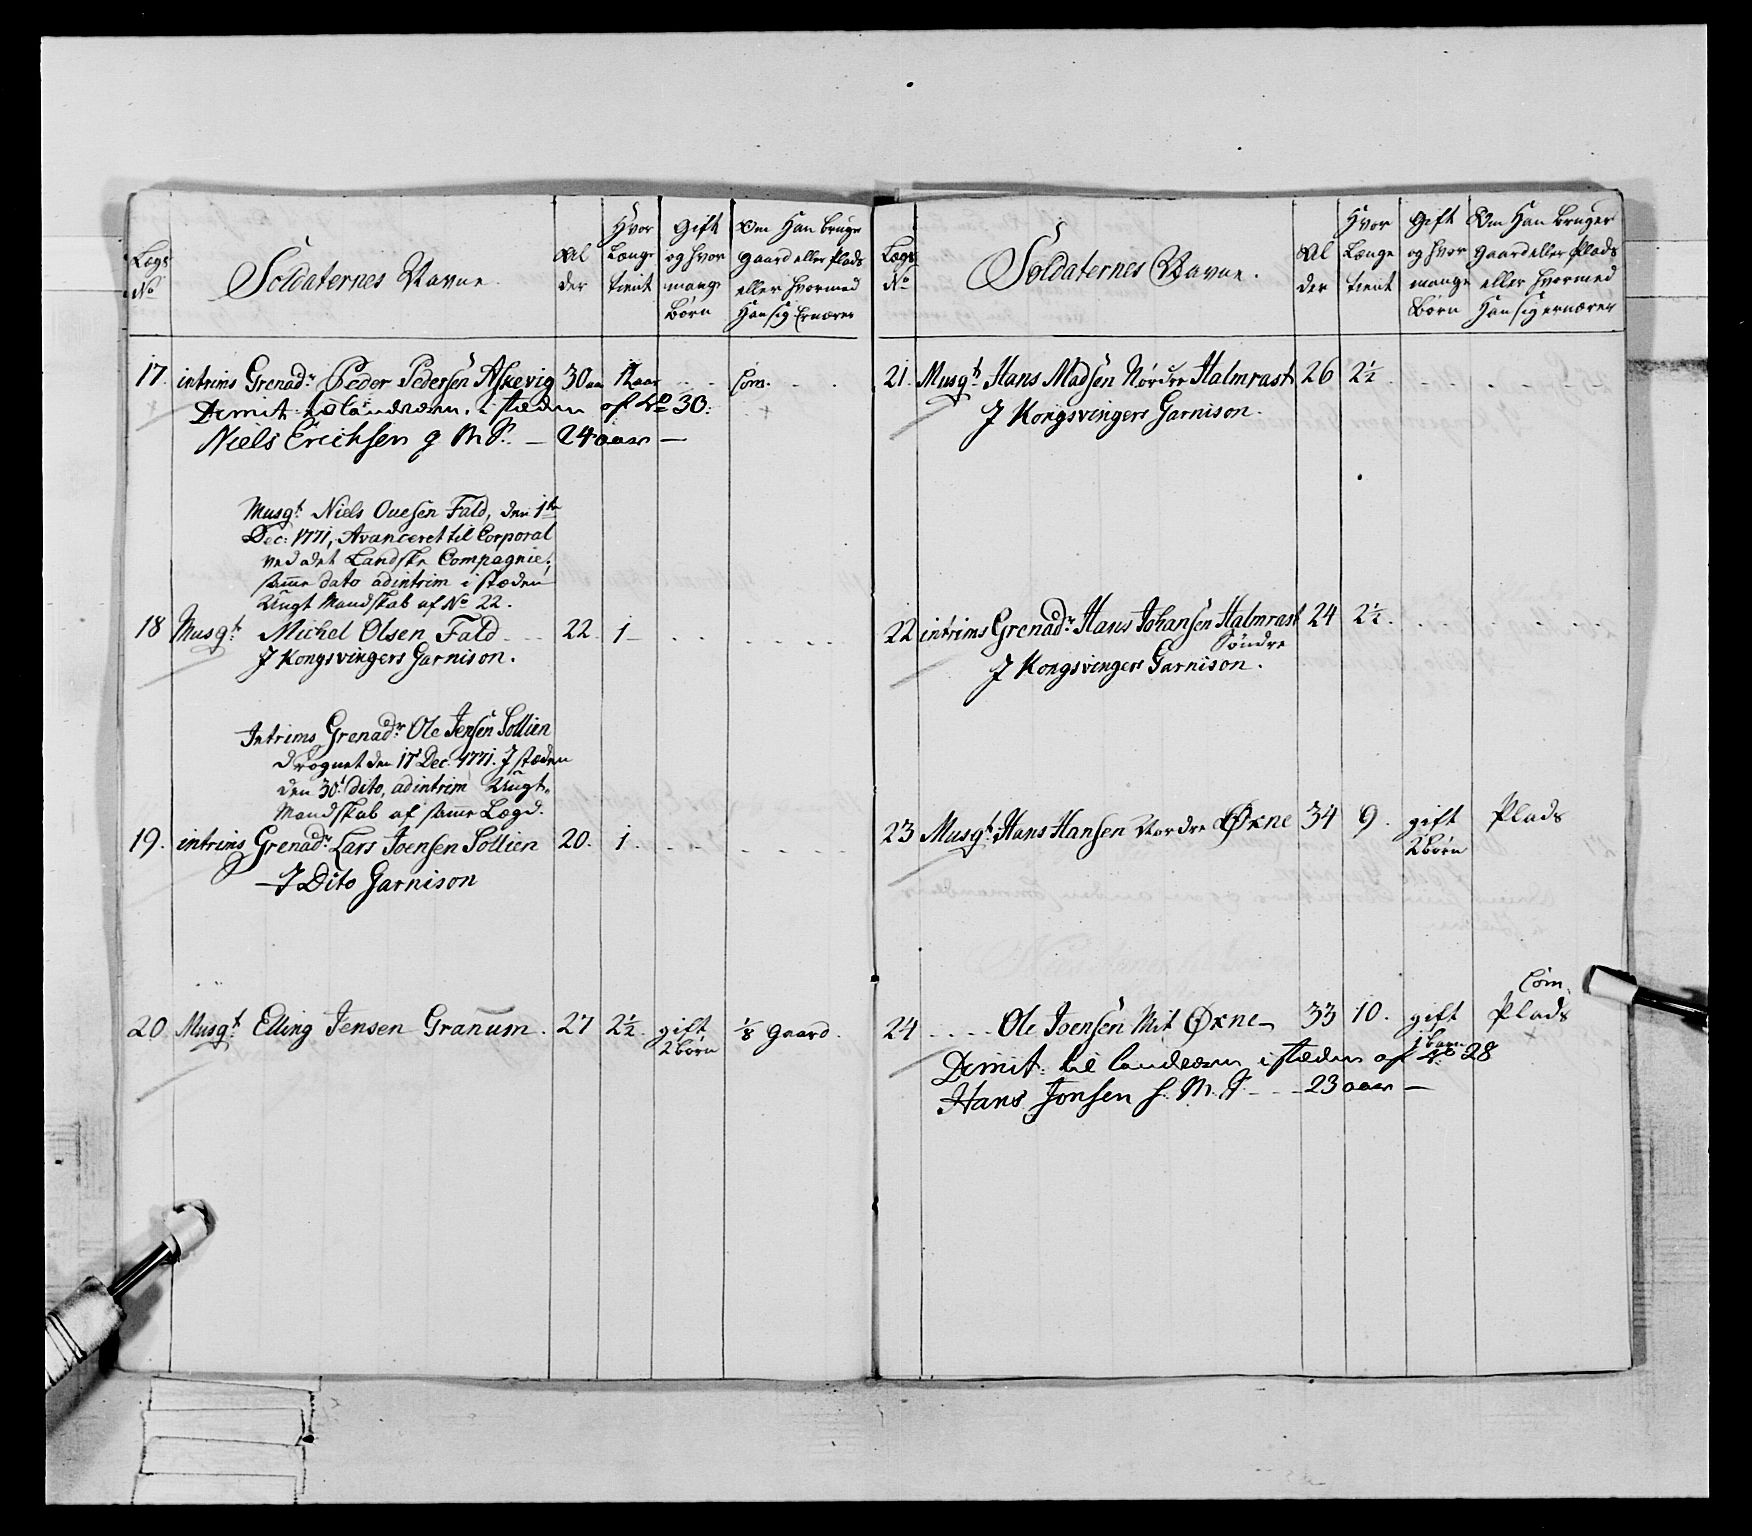 Lægs No
Soldaternes Navne.
Al der
Hvor Længe tient
Gift og hvor mange Børn
Om Han bruger gaard eller Plads eller hvormed Han sig Ernærer
17. intrims Grenadr Peder Pedersen Askevig 30 aar 12 aar - - Com. - -
Dimit: til Landværn. i stæden af No 30:
Niels Erichsen g M P. — 24 aar —
Musqt Niels Ouesen Fald, den 1te
Dec: 1771, Avanceret til Corporal
ved det Landske Compagnie,
samme dato adintrim i stæden
Ungt Mandskab af No 22.
18 Musqt Michel Olsen Fald - - 22. 1 -
J Kongsvingers Garnison.
Intrims Grenadr Ole Jensen Sollien
den 17 Dec. 1771. J stæden
den 30t dito, adintrim Ungt
Mandskab af samme Lægd.
19. intrims Grenadr Lars Joensen Sollien 20. 1.
— J Dito Garnison
20 Musqt Elling Jensen Granum. 27 2½. gift 1/8 Gaard.
2 børn
Lægs No
Soldaternes Navne.
Al der
Hvor Længe tient
Gift og hvor mange Børn
Om Han bruger gaard eller Plads eller hvormed Han sig ernærer
21. Musqt Hans Madsen Nordre Halmrast 26 2½
J Kongsvingers Garnison.
22 intrims Grenadr Hans Johansen Halmrast 24 2½.
Søndre
J Kongsvingers Garnison.
23 Musqt Hans Hansen Nordre Økne 34 9. gift Plads
2 børn
Com.
24 - - - - Ole Joensen Mit Økne 33 10. gift Plads
1 barn
Dimit: til Landværn i stæden af No 28
Hans Jonsen S. M. P. - - - 23 aar —